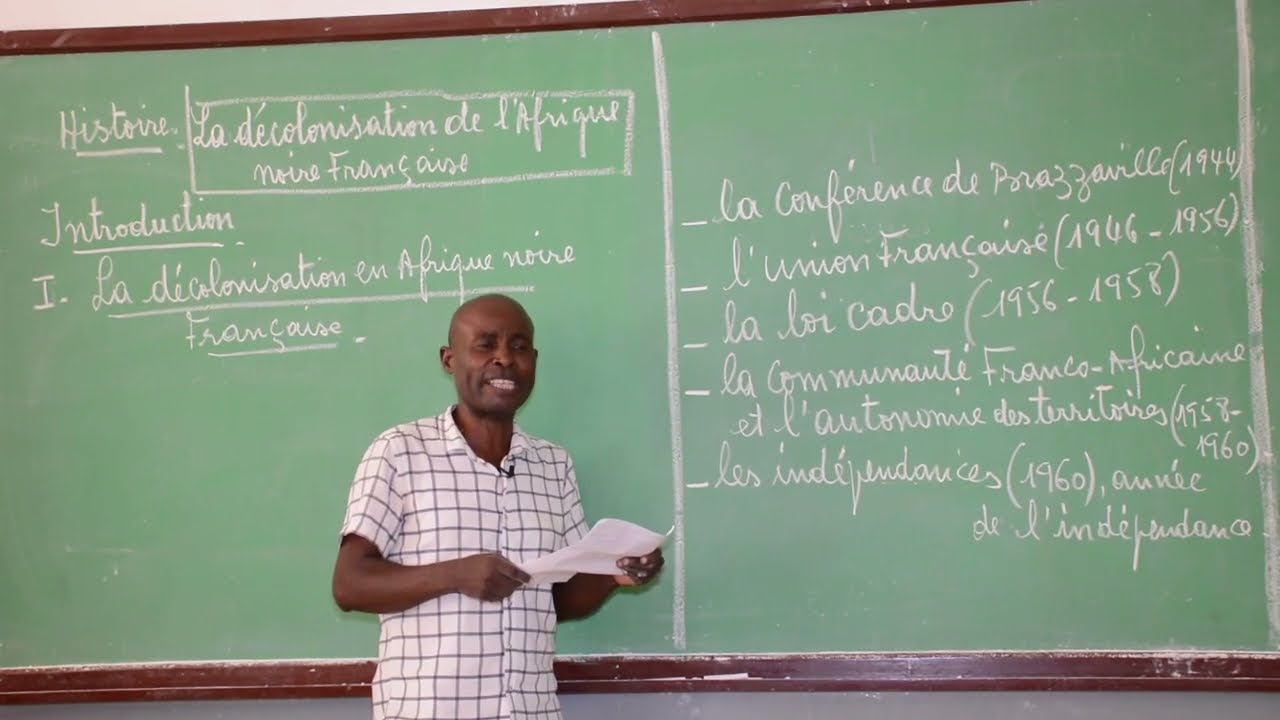 Histoire. La décolonisation de l'Afrique
noire Française
Introduction.
I. La décolonisation en Afrique noire
Française.
_ la conférence de Brazzaville (1944)
_ l'union Française (1946 - 1956)
_ la loi cadre (1956 - 1958)
_ la communauté Franco-Africaine
et l'autonomie des territoires (1958-
1960).
_ les indépendances (1960), année
de l'indépendance